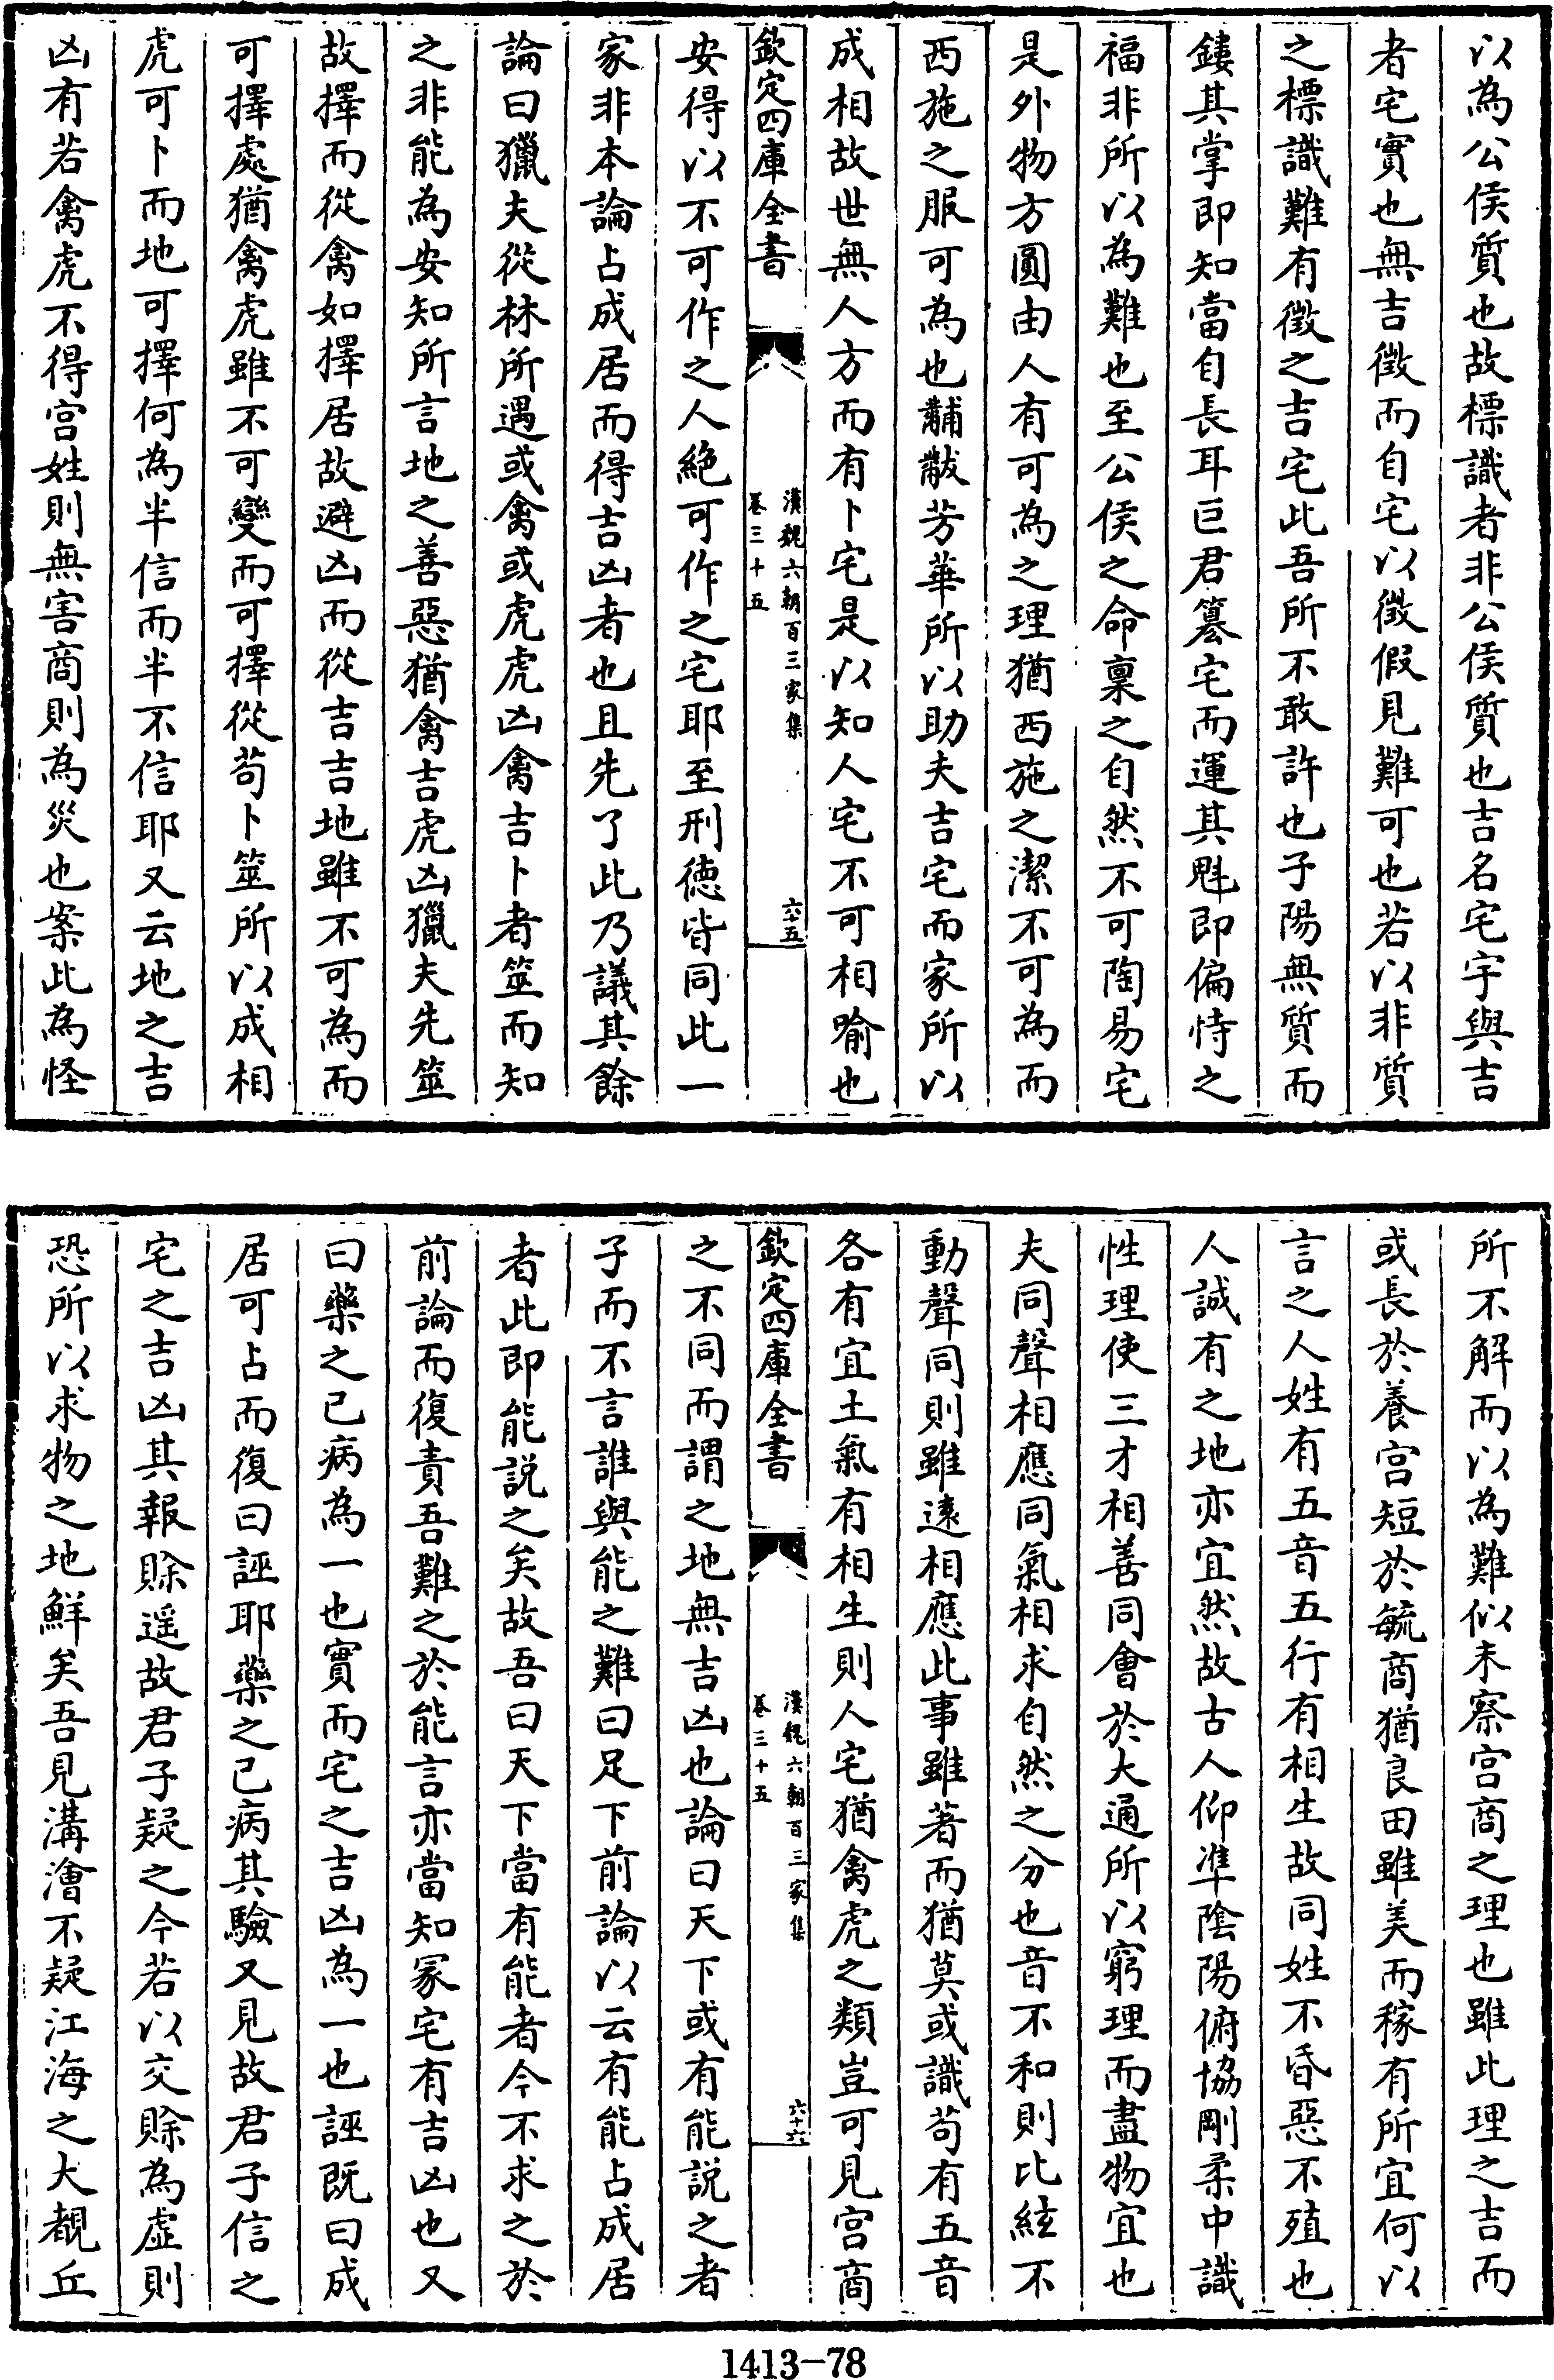 以為公侯質也故標識者非公侯質也吉名宅宇與吉
者宅實也無吉徵而自宅以徵假見難可也若以非質
之標識難有徵之吉宅此吾所不敢許也子陽無質而
鏤其掌即知當自長耳巨君篡宅而運其魁即偏恃之
福非所以為難也至公侯之命稟之自然不可陶易宅
是外物方圓由人有可為之理猶西施之潔不可為而
西施之服可為也黼黻芳華所以助夫吉宅而家所以
成相故世無人方而有卜宅是以知人宅不可相喻也
欽定四庫全書
漢魏六朝百三家集
卷三十五
六十五
安得以不可作之人絶可作之宅耶至刑德皆同此一
家非本論占成居而得吉凶者也且先了此乃議其餘
論曰獵夫從林所遇或禽或虎虎凶禽吉卜者筮而知
之非能為安知所言地之善惡猶禽吉虎凶獵夫先筮
故擇而從禽如擇居故避凶而從吉吉地雖不可為而
可擇處猶禽虎雖不可變而可擇從茍卜筮所以成相
虎可卜而地可擇何為半信而半不信耶又云地之吉
凶有若禽虎不得宫姓則無害商則為災也案此為怪
所不解而以為難似未察宫商之理也雖此理之吉而
或長於養宫短於毓商猶良田雖美而稼有所宜何以
言之人姓有五音五行有相生故同姓不昏惡不殖也
人誠有之地亦宜然故古人仰準陰陽俯協剛柔中識
性理使三才相善同會於大通所以窮理而盡物宜也
夫同聲相應同氣相求自然之分也音不和則比絃不
動聲同則雖逺相應此事雖著而猶莫或識茍有五音
各有宜土氣有相生則人宅猶禽虎之類豈可見宫商
欽定四庫全書
漢魏六朝百三家集
卷三十五
六十六
之不同而謂之地無吉凶也論曰天下或有能説之者
子而不言誰與能之難曰足下前論以云有能占成居
者此即能説之矣故吾曰天下當有能者今不求之於
前論而復責吾難之於能言亦當知冡宅有吉凶也又
曰藥之已病為一也實而宅之吉凶為一也誣既曰成
居可占而復曰誣耶藥之已病其驗又見故君子信之
宅之吉凶其報賒遥故君子疑之今若以交賒為虚則
恐所以求物之地鮮矣吾見溝澮不疑江海之大覩丘
1413-78